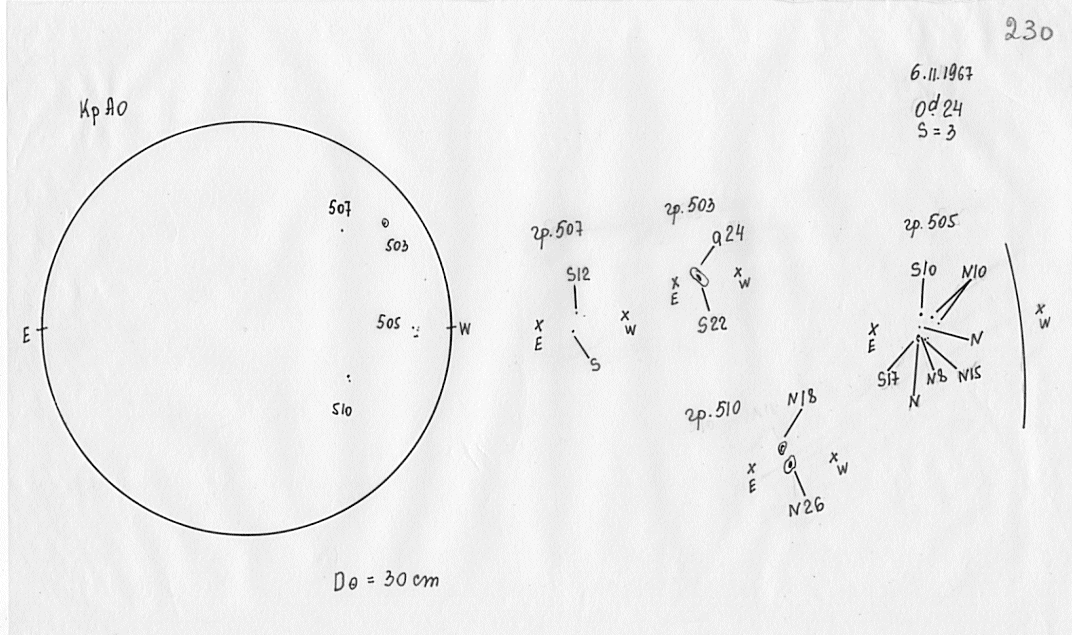 230
6.11.1967
0d 24
S = 3
КрАО
507
503
505
510
E
W
гр.507
S12
S
x
E
x
W
гр.503
q24
S22
x
E
x
W
гр.505
S10
N10
N
S17
N8
N15
N
x
E
x
W
гр.510
N18
N26
x
E
x
W
D⊙ = 30 cm